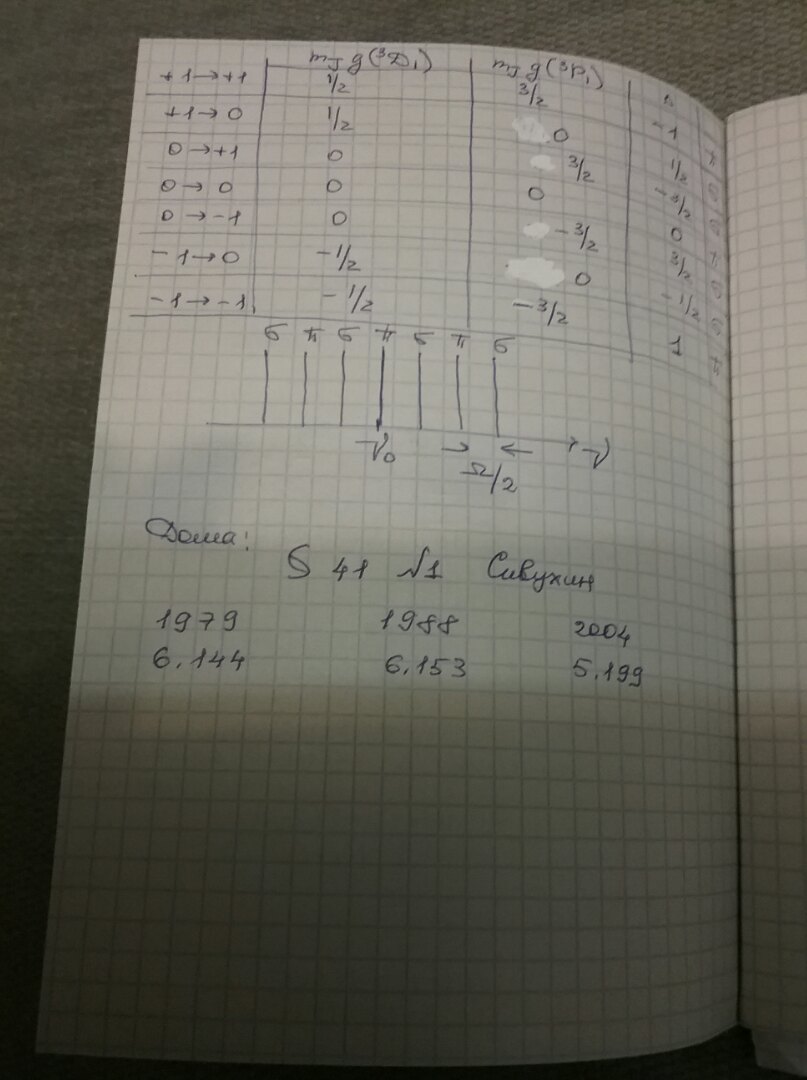 mJ g(³D₁) mJ g(³P₁)
+1→+1 1/2 3/2 -1 π
+1→0 1/2 0 1/2 σ
0→+1 0 3/2 -3/2 σ
0→0 0 0 0 π
0→-1 0 -3/2 3/2 σ
-1→0 -1/2 0 -1/2 σ
-1→-1 -1/2 -3/2 1 π
σ π σ π σ π σ
ν₀ → ← → ν
Ω/2
Дома:
§ 41 №1 Сивухин
1979 1988 2004
6.144 6.153 5.199